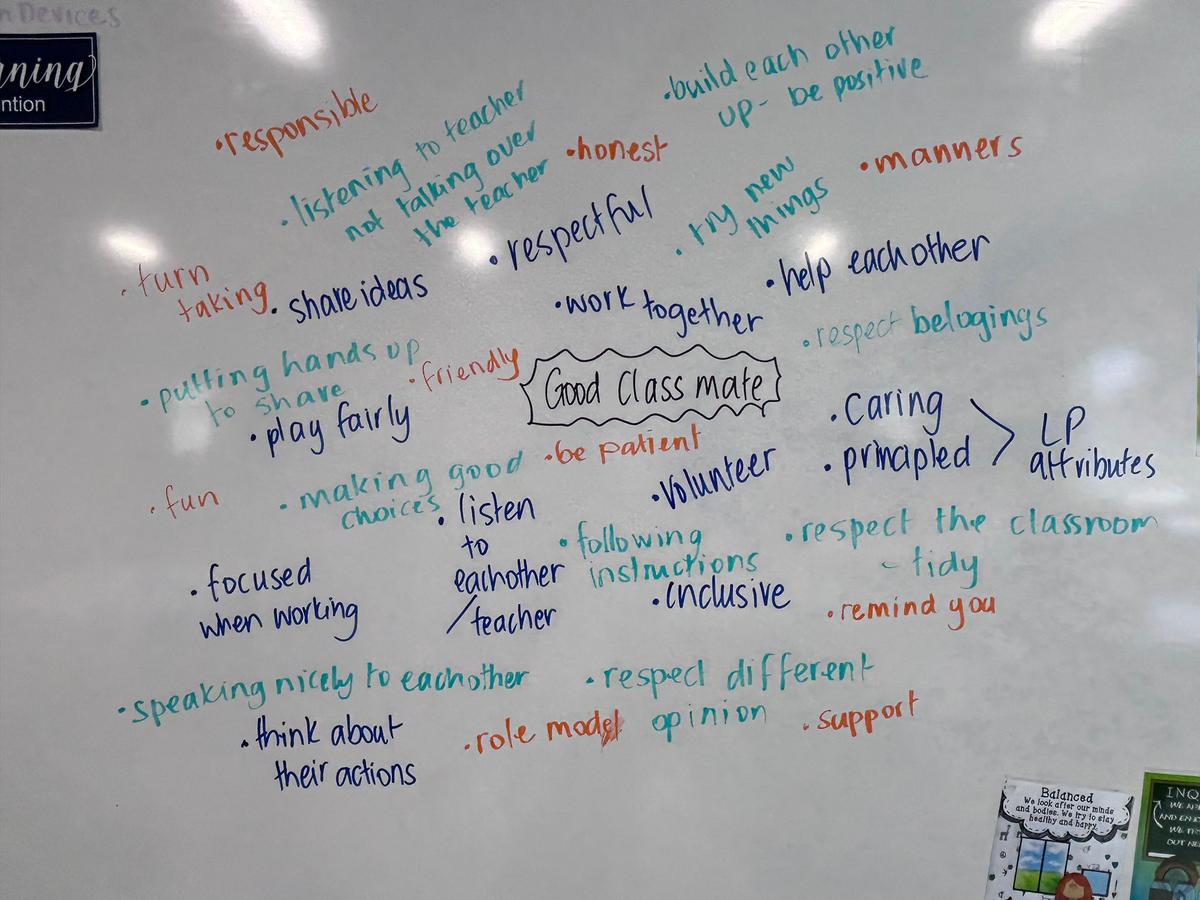 n Devices
rning
ntion
• build each other
up - be positive
• responsible
• listening to teacher
not talking over
the teacher
• honest
• manners
• try new
things
• respectful
• turn
taking
• share ideas
• work together
• help eachother
• respect belogings
• putting hands up
to share
• friendly
Good Class mate
• play fairly
• caring
• principled
LP
attributes
• be patient
• volunteer
• fun
• making good
choices
• listen
to
eachother
/teacher
• following
instructions
• respect the classroom
- tidy
• focused
when working
• inclusive
• remind you
• speaking nicely to eachother
• respect different
opinion
• think about
their actions
• role model
• support
Balanced
We look after our minds
and bodies. We try to stay
healthy and happy.
INQ
WE
AND EN
WE TR
OUT NE